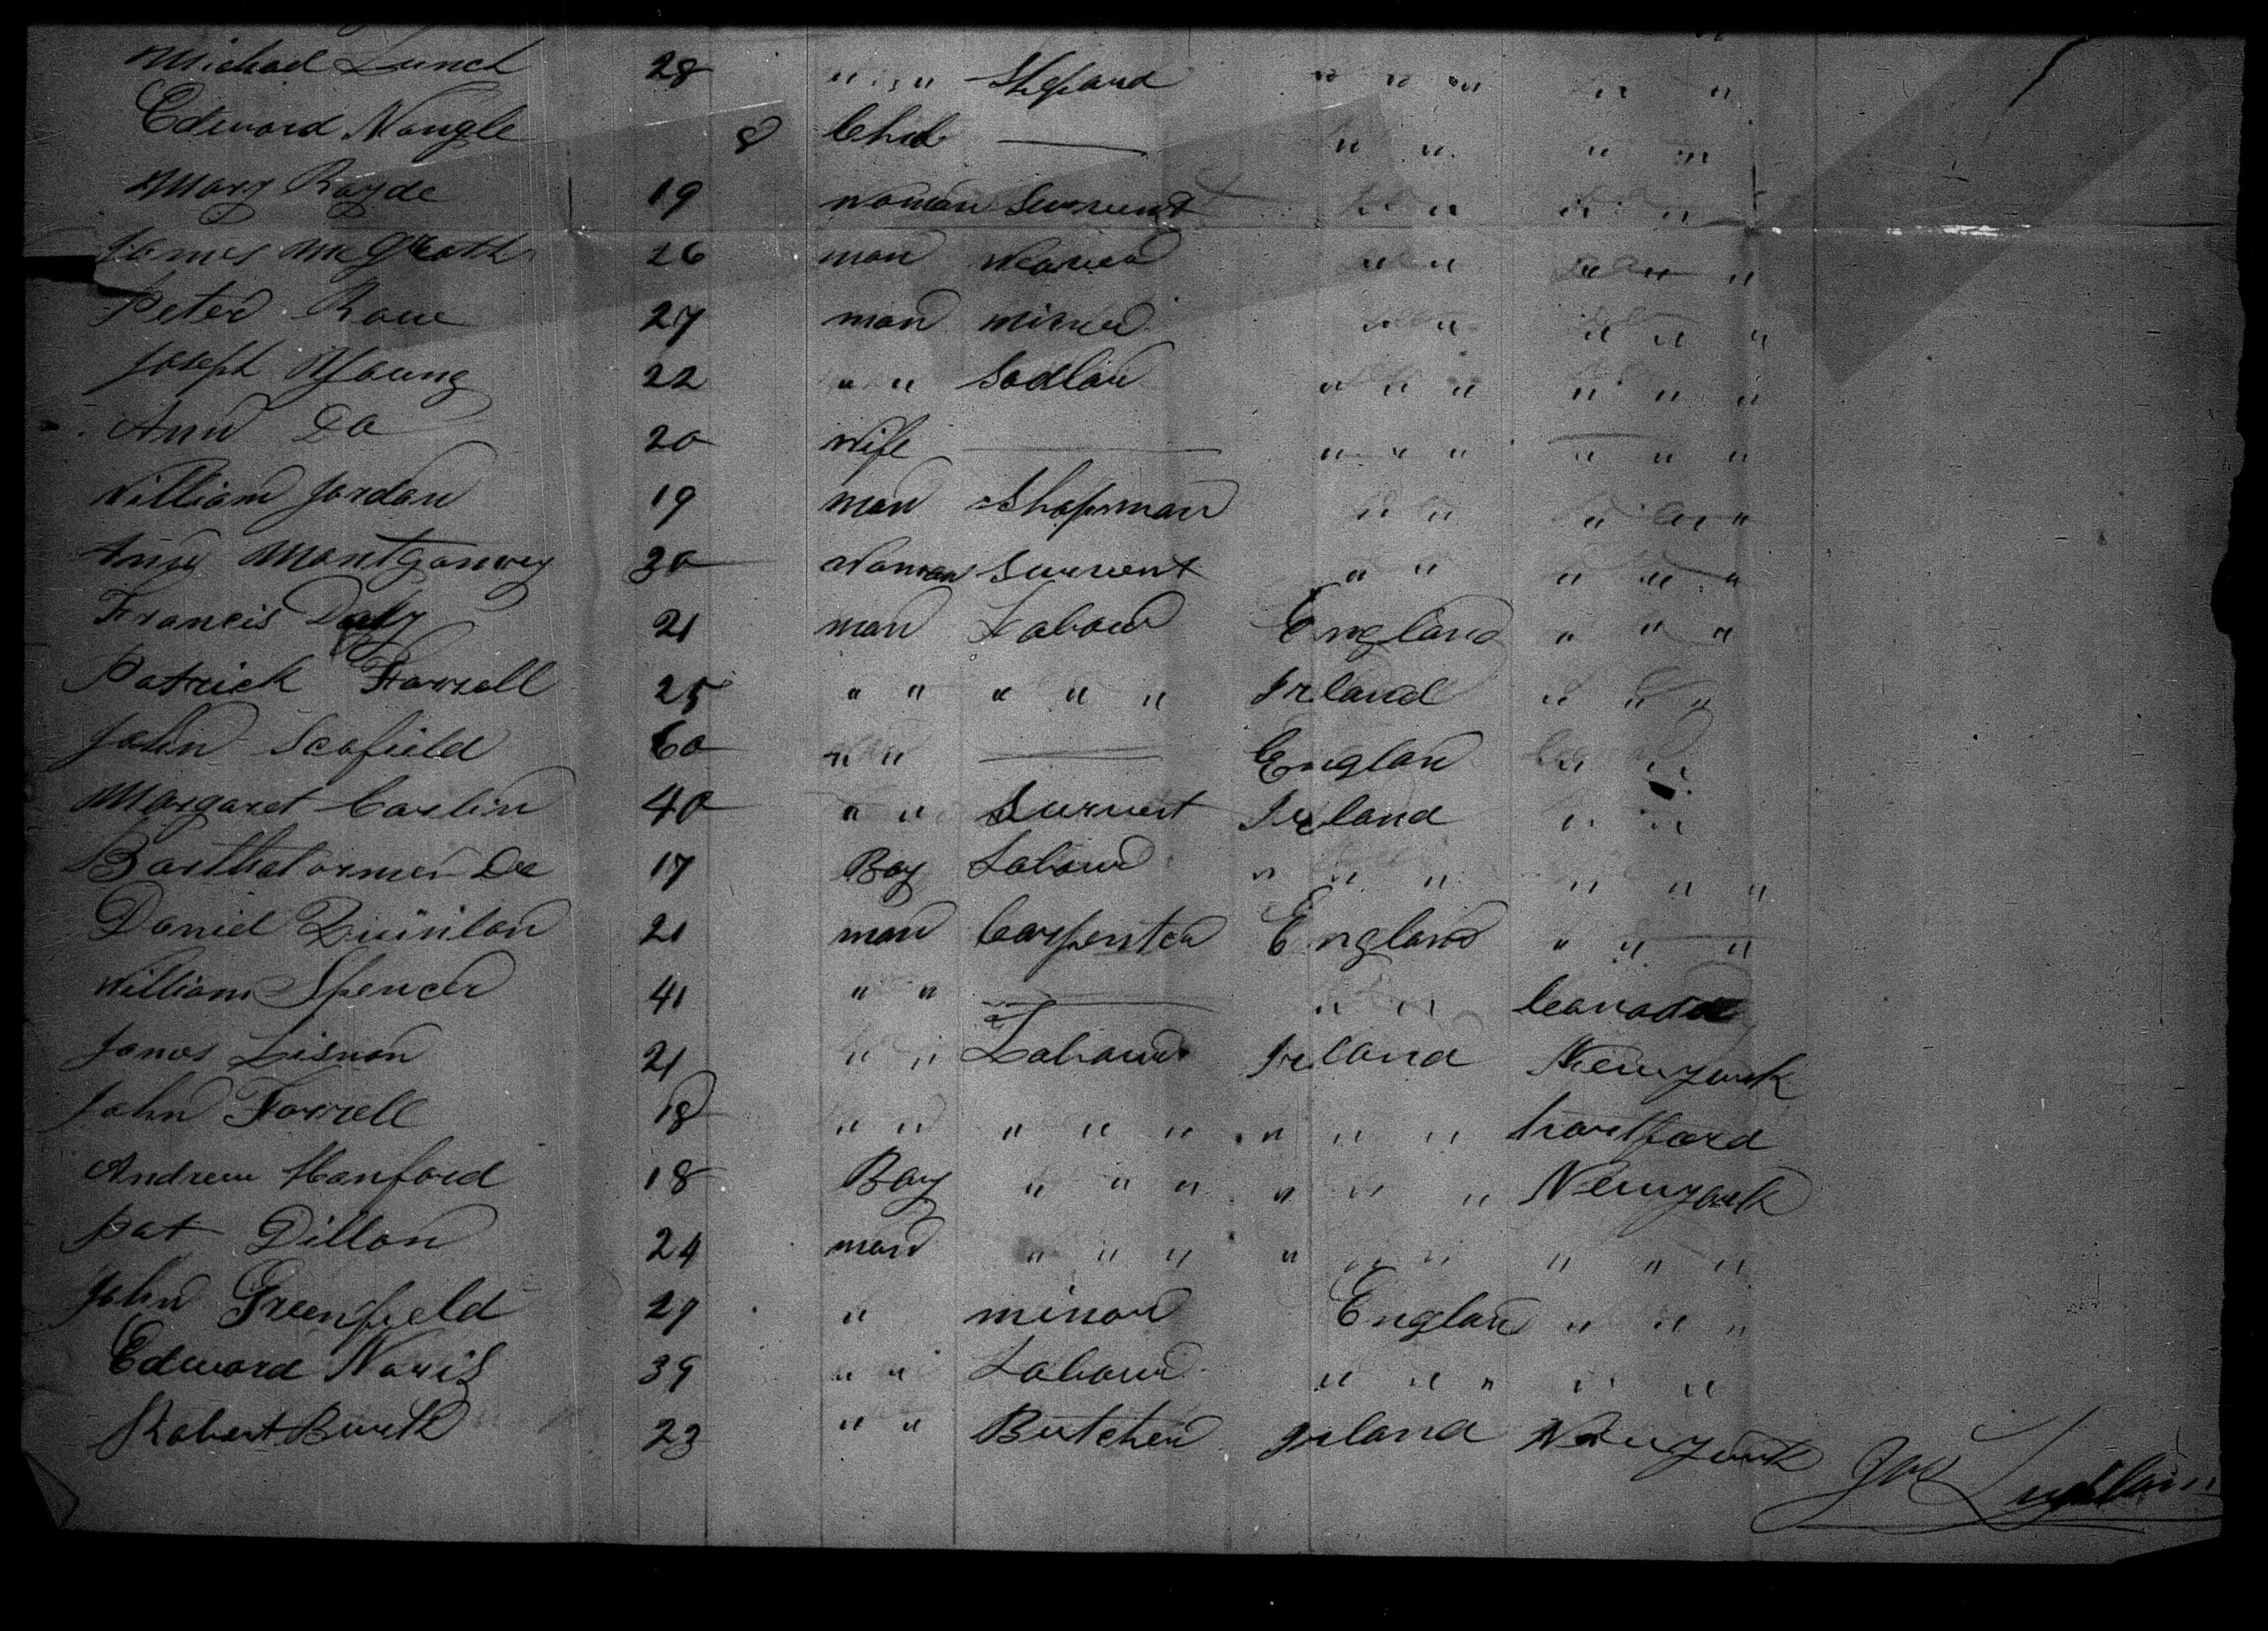 Michael Lunch 28 " " " Shepard " " " " "
Edward Nangle 8 Child — " " " "
Mary Rayde 19 woman survunt " " " "
James McGrath 26 man weaver " " " " "
Peter Rowe 27 man minier " " " " "
Joseph Young 22 " " Sadlar " " " " " "
Ann Do 20 wife — " " " " " "
William Jordan 19 man Shopman " " " " "
Montgomrey 30 Woman Survent " " " " "
Francis Daly 21 man Labour England " " "
Patrick Farrell 25 " " " " " Irland " " "
John Scofield 60 " " — Englan " "
Margaret Carlin 40 " " Survent Ireland " "
Do 17 Boy Labour " " " " " "
Daniel Quinlan 21 man Carpenter England " " "
William Spencer 41 " " — " " Canada
James Lisnon 21 " " Labour Irland Newyork
John Farrell 18 " " " " " " " " hartford
Andrew Hanford 18 Boy " " " " " " Newyork
Pat Dillon 24 man " " " " " " " " "
John Greenfield 29 " minor Englan " " "
Edward Noris 39 " " Labour " " " " "
Robert Burk 23 " " Butcher Irland Newyork